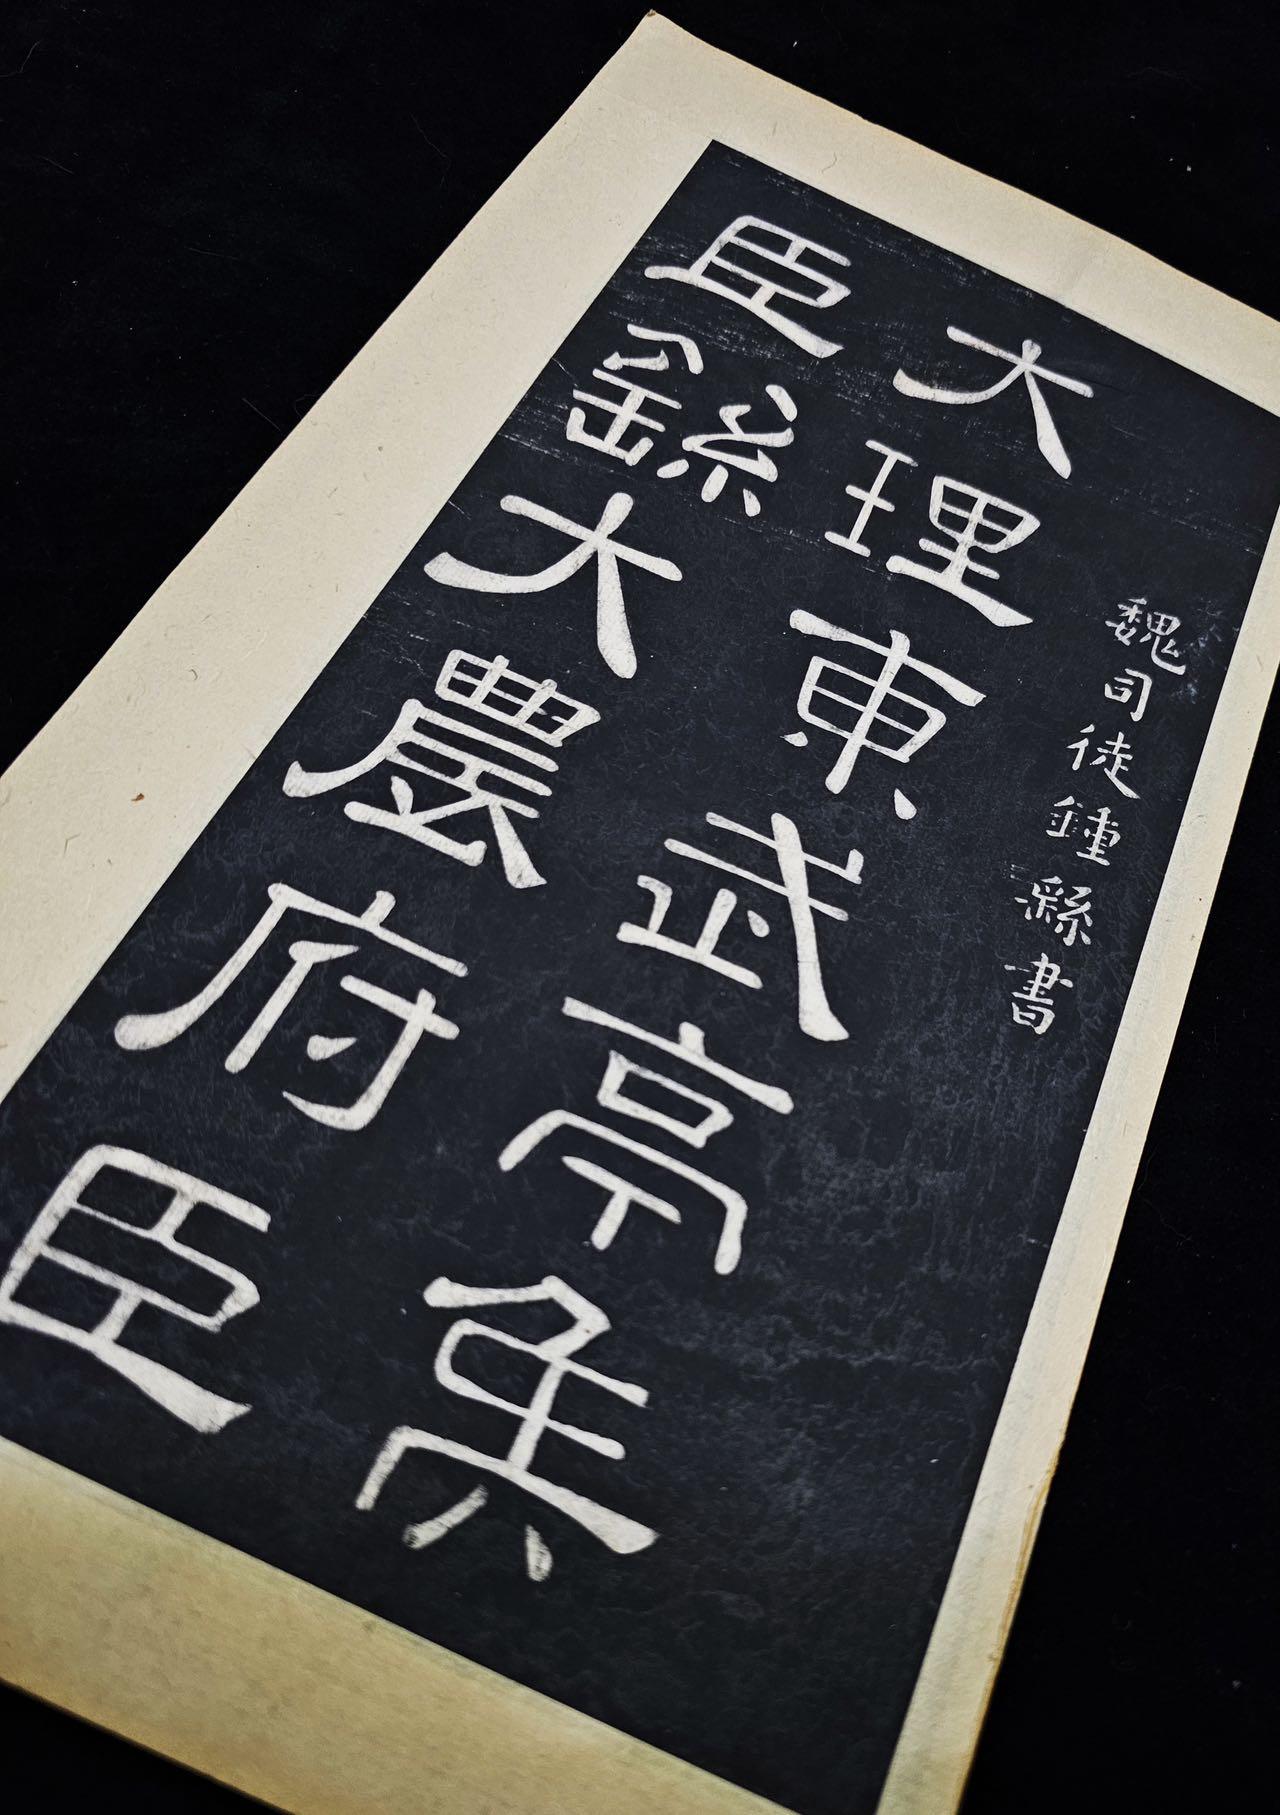 魏司徒鍾繇書
大理東武亭侯
臣繇大農府臣